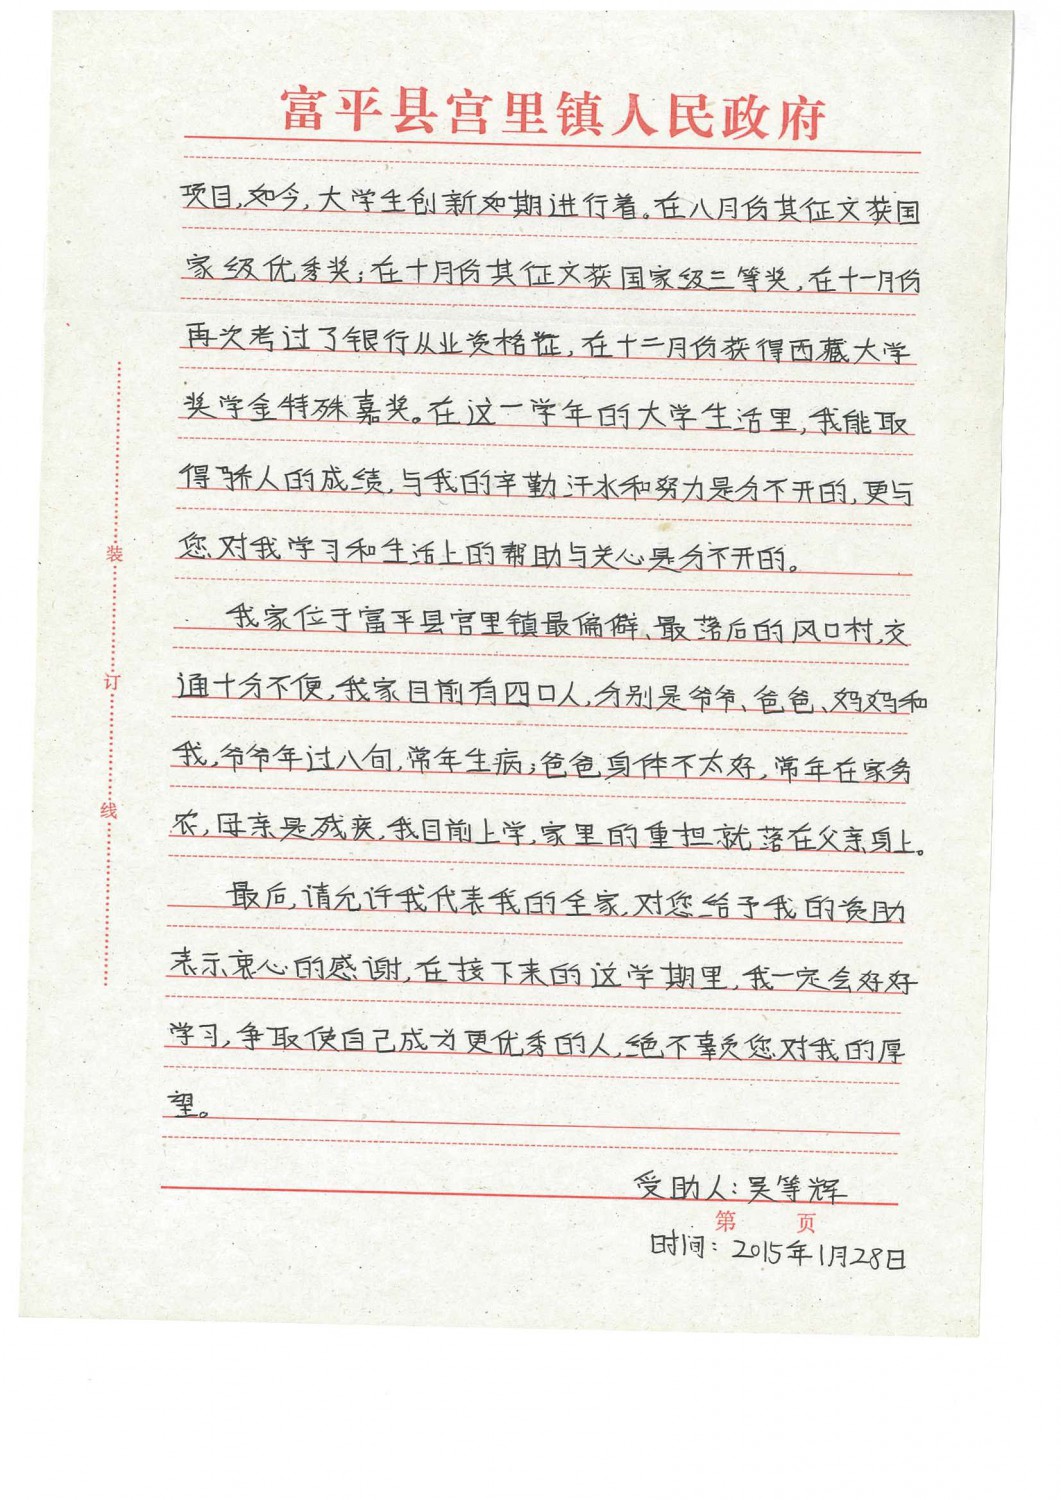 富平县宫里镇人民政府
项目,如今,大学生创新如期进行着。在八月份其征文获国
家级优秀奖;在十月份其征文获国家级三等奖,在十一月份
再次考过了银行从业资格证,在十二月份获得西藏大学
奖学金特殊嘉奖。在这一学年的大学生活里,我能取
得骄人的成绩,与我的辛勤汗水和努力是分不开的,更与
您对我学习和生活上的帮助与关心是分不开的。
我家位于富平县宫里镇最偏僻、最落后的风口村,交
通十分不便,我家目前有四口人,分别是爷爷、爸爸、妈妈和
我,爷爷年过八旬,常年生病;爸爸身体不太好,常年在家务
农,母亲是残疾,我目前上学,家里的重担就落在父亲身上。
最后,请允许我代表我的全家,对您给予我的资助
表示衷心的感谢,在接下来的这学期里,我一定会好好
学习,争取使自己成为更优秀的人,绝不辜负您对我的厚
望。
受助人:吴等辉
第 页
时间:2015年1月28日
装
订
线